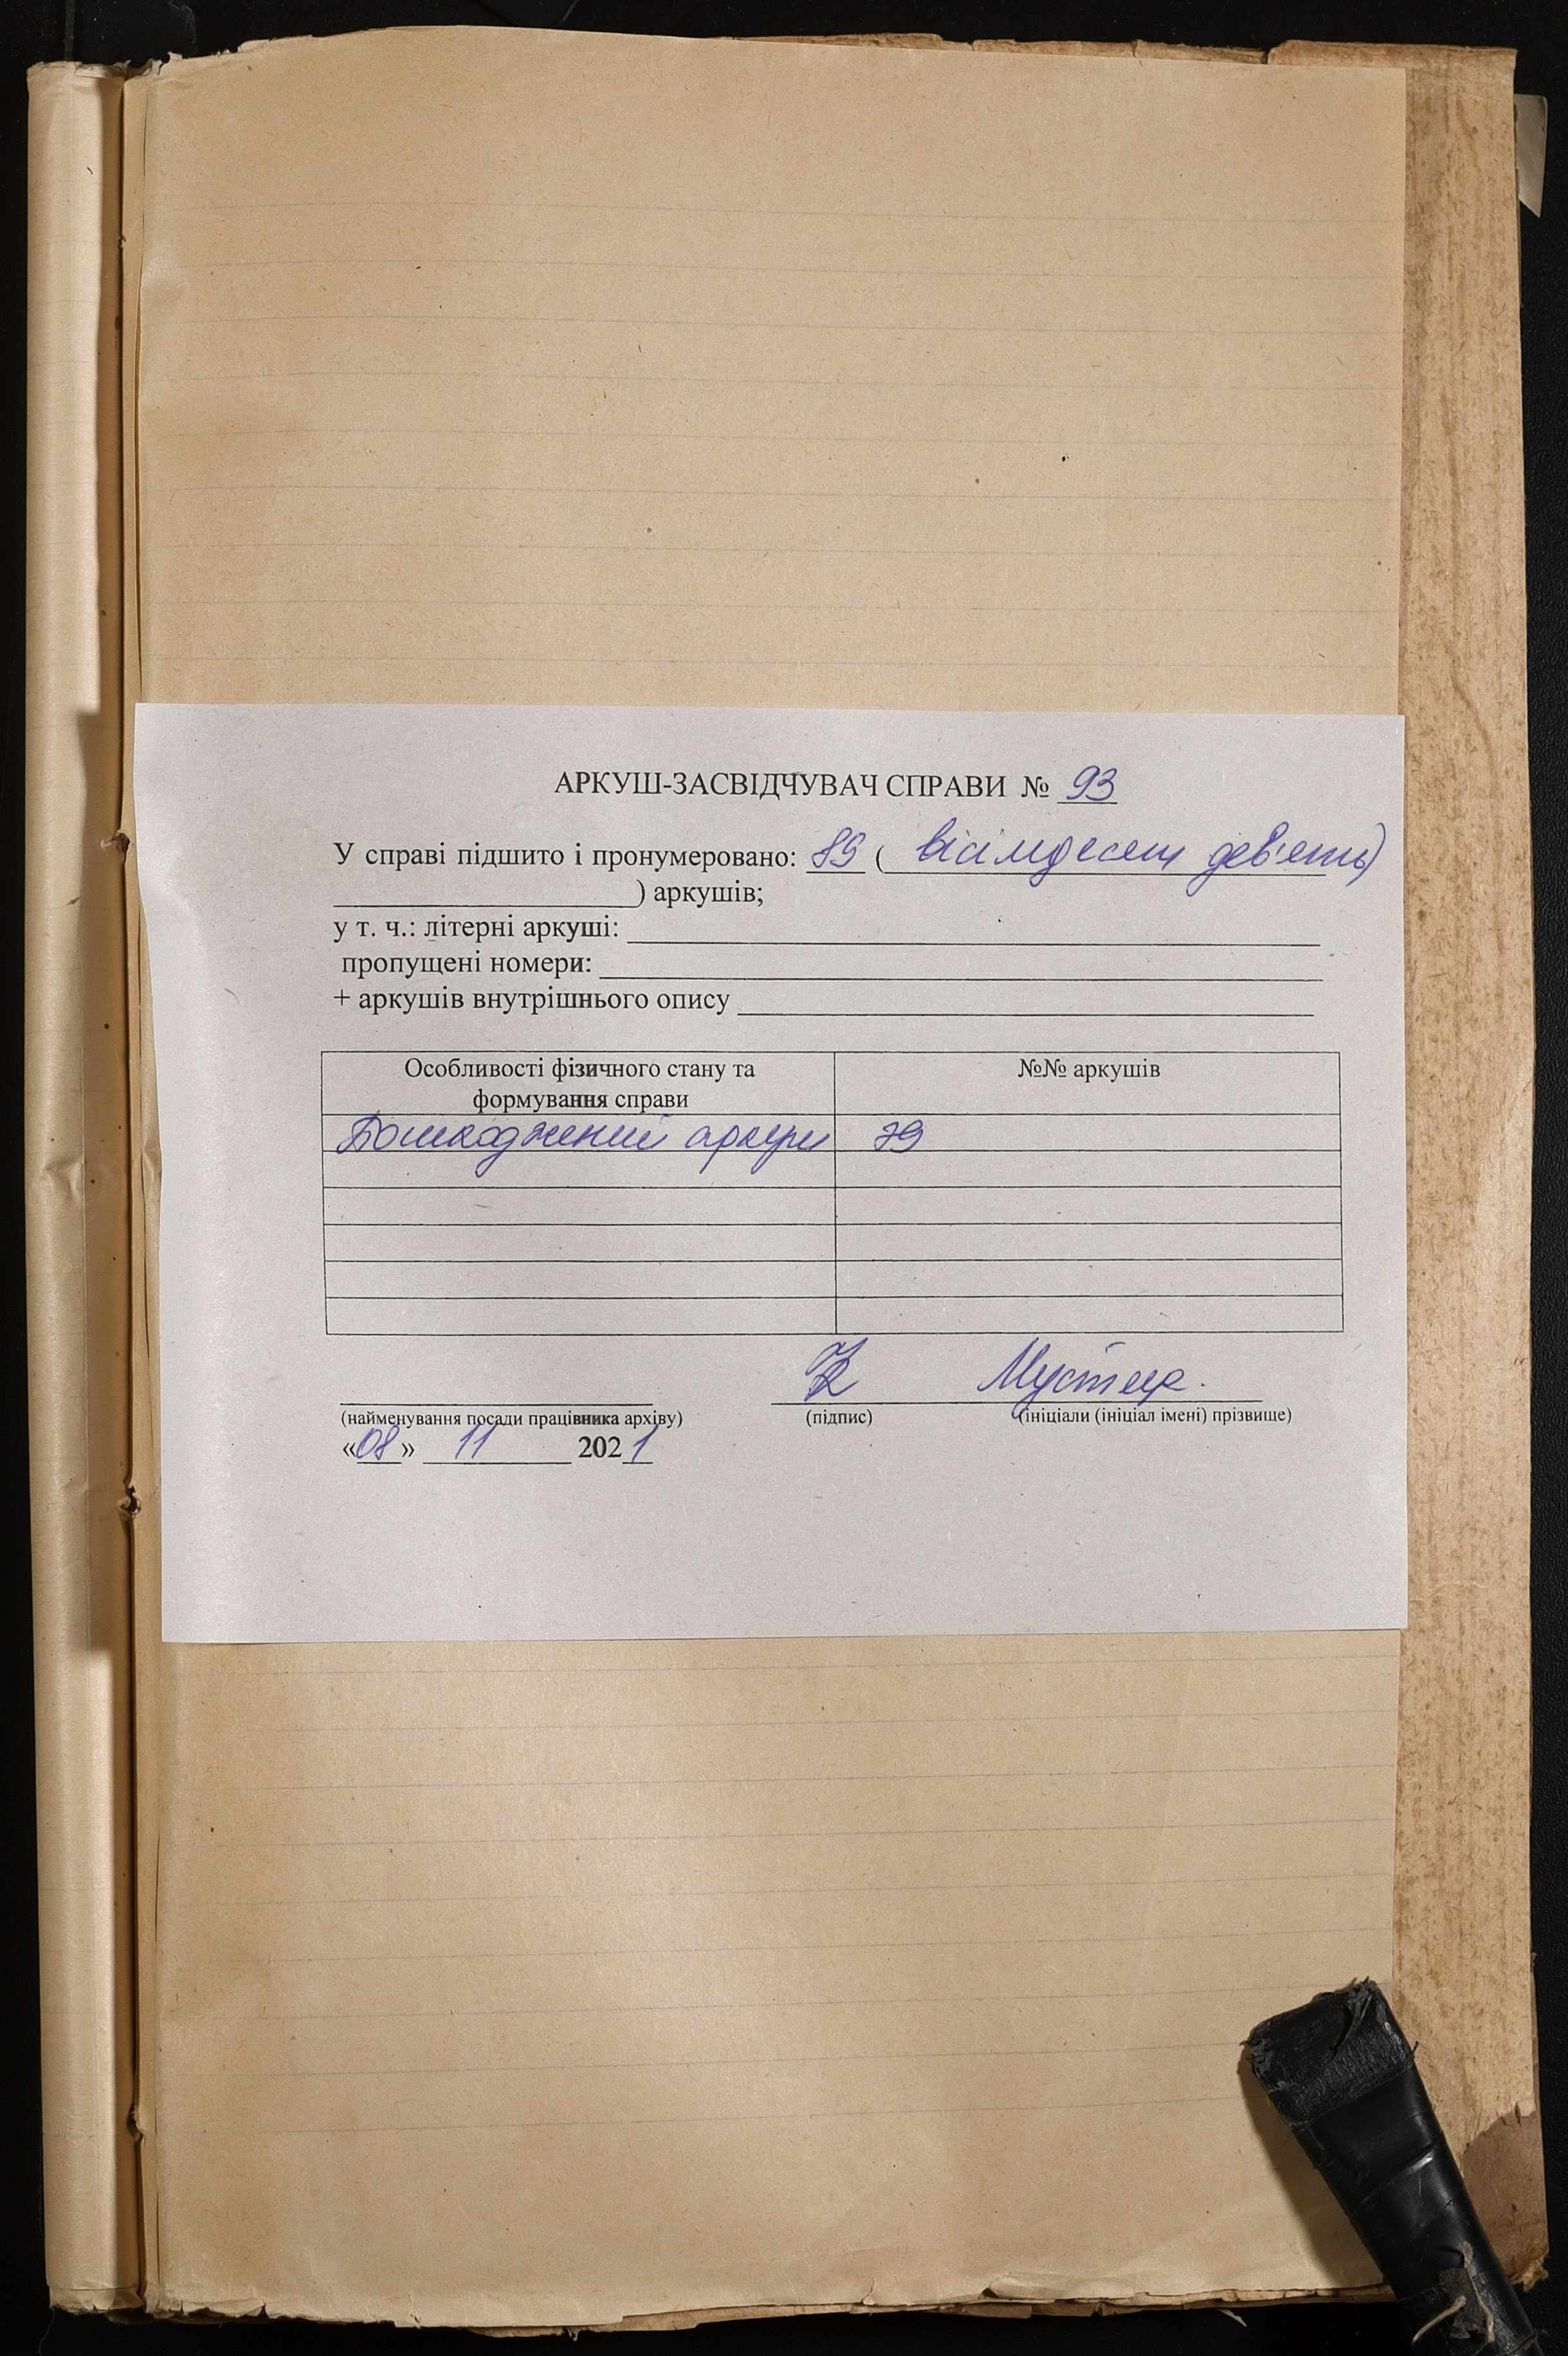 АРКУШ-ЗАСВІДЧУВАЧ СПРАВИ № 93
У справі підшито і пронумеровано: 89 ( вісімдесят дев'ять)
) аркушів;
у т. ч.: літерні аркуші:
пропущені номери:
+ аркушів внутрішнього опису
Особливості фізичного стану та формування справи
№№ аркушів
Пошкоджений аркуш 79
(найменування посади працівника архіву) (підпис) (ініціали (ініціал імені) прізвище)
«08» 11 2021